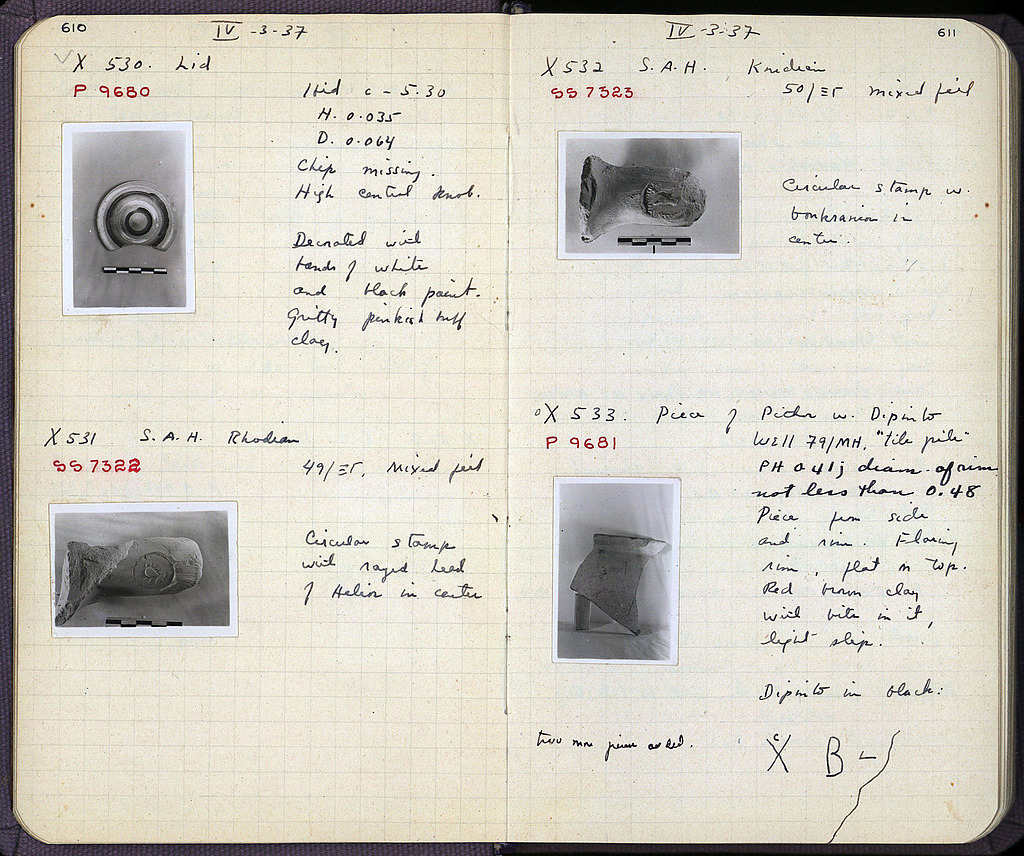 610
IV -3-37
X 530. Lid
P 9680
Ibid c - 5.30
H. 0.035
D. 0.064
Chip missing.
High central knob.
Decorated with
bands of white
and black paint.
Gritty pinkish buff
clay.
X 531 S.A.H. Rhodian
SS 7322
49/ΞΓ, Mixed fill
Circular stamp
with rayed head
of Helios in center
IV -3-37
611
X 532 S.A.H. Knidian
SS 7323
50/ΞΓ mixed fill
Circular stamp w.
boukranion in
center.
X 533. Piece of Pithos w. Dipinto
P 9681
Well 79/MH, "tile pile"
PH 0.41; diam. of rim
not less than 0.48
Piece from side
and rim. Flaring
rim, flat on top.
Red brown clay
with bits in it,
light slip.
Dipinto in black:
two more pieces added.
X B